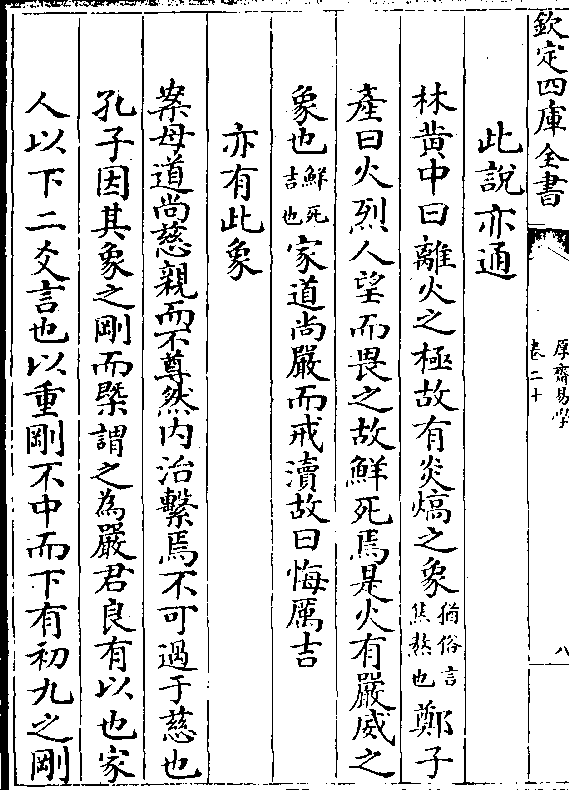 欽定四庫全書
厚齋易學
卷二十
八
此説亦通
林黄中曰離火之極故有炎熇之象猶俗言焦熬也鄭子
產曰火烈人望而畏之故鮮死焉是火有嚴威之
象也鮮死吉也家道尚嚴而戒瀆故曰悔厲吉
亦有此象
案母道尚慈親而不尊然内治繫焉不可過于慈也
孔子因其象之剛而槩謂之為嚴君良有以也家
人以下二爻言也以重剛不中而下有初九之剛